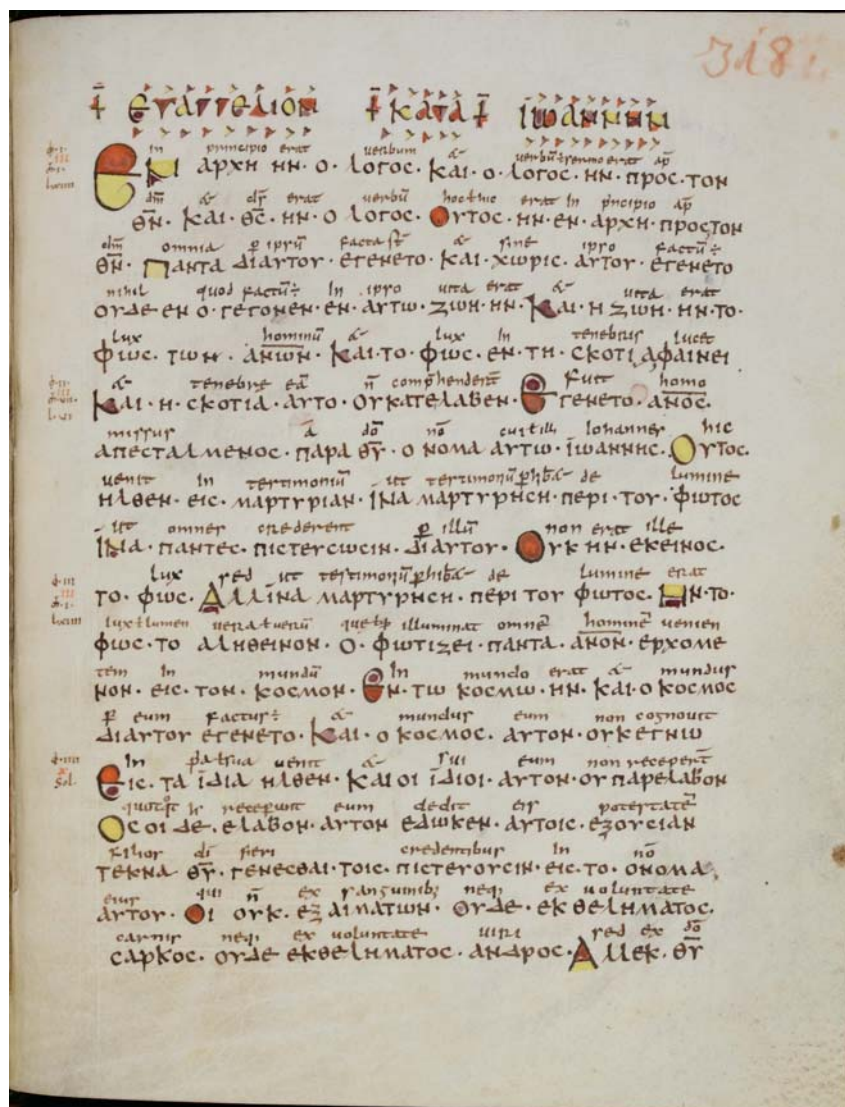 318.
ΕΥΑΓΓΕΛΙΟΝ ΚΑΤΑ ΙΩΑΝΝΗΝ
In principio erat uerbum & uerbū ł sermo erat ap̄
ΕΝ ΑΡΧΗ ΗΝ· Ο· ΛΟΓΟC· ΚΑΙ· Ο· ΛΟΓΟC· ΗΝ· ΠΡΟC· ΤΟΝ
dm̄ & dş erat uerbū hoc ł hic erat In principio ap̄
ΘΝ̄· ΚΑΙ· ΘC̄· ΗΝ· Ο ΛΟΓΟC· ΟΥΤΟC· ΗΝ· ΕΝ· ΑΡΧΗ· ΠΡΟCΤΟΝ
dm̄ omnia ꝑ ipsū facta st̄ & sine ipso factū÷
ΘΝ̄· ΠΑΝΤΑ ΔΙΑΥΤΟΥ· ΕΓΕΝΕΤΟ· ΚΑΙ· ΧΩΡΙC· ΑΥΤΟΥ· ΕΓΕΝΕΤΟ
nihil quod factū÷ In ipso uita erat & uita erat
ΟΥΔΕ ΕΝ Ο· ΓΕΓΟΝΕΝ· ΕΝ· ΑΥΤΩ· ΖΩΗ· ΗΝ· ΚΑΙ· Η ΖΩΗ· ΗΝ· ΤΟ·
lux hominū & lux In tenebris lucet
ΦΩC· ΤΩΝ· ΑΝ̄ΩΝ· ΚΑΙ· ΤΟ· ΦΩC· ΕΝ· ΤΗ· CΚΟΤΙΑΦΑΙΝΕΙ
& tenebre eā n̄ comp̄hendert̄ Fuit homo
ΚΑΙ· Η· CΚΟΤΙΑ· ΑΥΤΟ· ΟΥΚΑΤΕΛΑΒΕΝ· ΕΓΕΝΕΤΟ· ΑΝ̄ΟC·
missus ā dō nō cui ł illi Iohannes hic
ΑΠΕCΤΑΛΜΕΝΟC· ΠΑΡΑ ΘῩ· Ο ΝΟΜΑ ΑΥΤΩ· ΙΩΑΝΝΗC· ΟΥΤΟC·
uenit In testimoniū ut testimoniū ꝑhibē& de luminē
ΗΛΘΕΝ· ΕΙC· ΜΑΡΤΥΡΙΑΝ· ΙΝΑ ΜΑΡΤΥΡΗCΗ· ΠΕΡΙ· ΤΟΥ· ΦΩΤΟC
ut omnes crederent ꝑ illū non erat ille
ΙΝΑ· ΠΑΝΤΕC· ΠΙCΤΕΥCΩCΙΝ· ΔΙΑΥΤΟΥ· ΟΥΚ ΗΝ· ΕΚΕΙΝΟC·
lux sed ut testimoniū ꝑhibē& de luminē erat
ΤΟ· ΦΩC· ΑΛΛΙΝΑ ΜΑΡΤΥΡΗCΗ· ΠΕΡΙ ΤΟΥ ΦΩΤΟC· ΗΝ· ΤΟ·
lux ł lumen uera ł uerū illuminat omnē hominē uenien
ΦΩC· ΤΟ ΑΛΗΘΕΙΝΟΝ· Ο· ΦΩΤΙΖΕΙ· ΠΑΝΤΑ· ΑΝ̄ΟΝ· ΕΡΧΟΜΕ
tem In mundū In mundo erat & mundus
ΝΟΝ· ΕΙC· ΤΟΝ· ΚΟCΜΟΝ· ΕΝ· ΤΩ ΚΟCΜΩ· ΗΝ· ΚΑΙ· Ο ΚΟCΜΟC
ꝑ eum factus÷ & mundus eum non cognouit
ΔΙΑΥΤΟΥ ΕΓΕΝΕΤΟ· ΚΑΙ· Ο ΚΟCΜΟC· ΑΥΤΟΝ· ΟΥΚΕΓΝΩ
In p̄pa ł sua uenit & sui eum non receper̄t
ΕΙC· ΤΑ ΙΔΙΑ ΗΛΘΕΝ· ΚΑΙ ΟΙ ΙΔΙΟΙ· ΑΥΤΟΝ· ΟΥ ΠΑΡΕΛΑΒΟΝ
receperunt eum dedit eis potestatē
ΟCΟΙ ΔΕ· ΕΛΑΒΟΝ· ΑΥΤΟΝ ΕΔΩΚΕΝ· ΑΥΤΟΙC· ΕΞΟΥCΙΑΝ
filios dī fieri credentibus In nō
ΤΕΚΝΑ ΘῩ· ΓΕΝΕCΘΑΙ· ΤΟΙC· ΠΙCΤΕΥΟΥCΙΝ· ΕΙC· ΤΟ· ΟΝΟΜΑ
eius qui n̄ ex sanguinib; neq; ex uoluntate
ΑΥΤΟΥ· ΟΙ ΟΥΚ· ΕΞ ΑΙΜΑΤΩΝ· ΟΥΔΕ· ΕΚ ΘΕΛΗΜΑΤΟC·
carnis neq; ex uoluntate uiri sed ex dō
CΑΡΚΟC· ΟΥΔΕ ΕΚΘΕΛΗΜΑΤΟC· ΑΝΔΡΟC· ΑΛΛΕΚ· ΘῩ